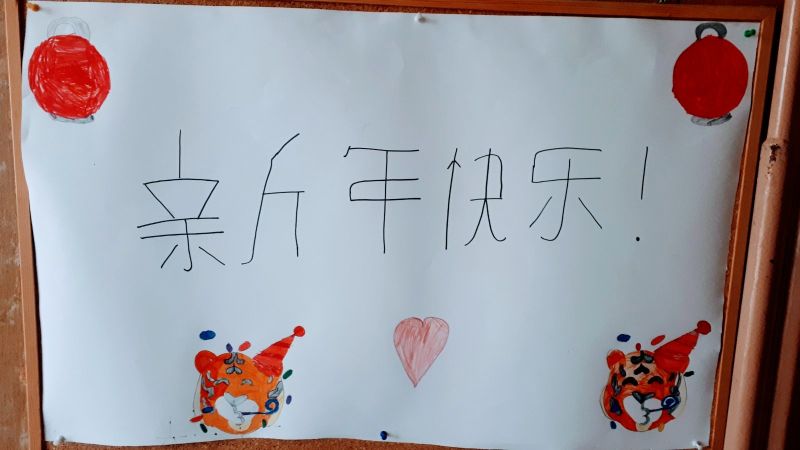 新年快乐!